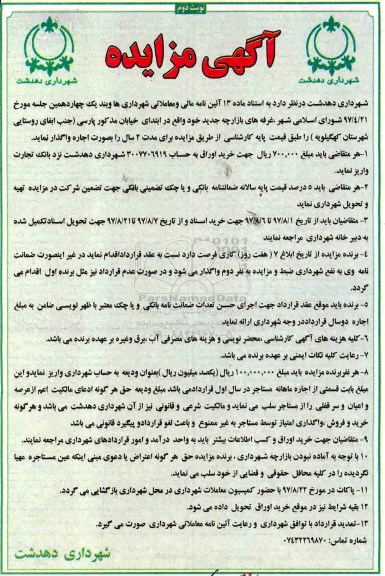 نوبت دوم
آگهی مزایده
شهرداری دهدشت
شهرداری دهدشت
شهرداری دهدشت درنظر دارد به استناد ماده ۱۳ آئین نامه مالی ومعاملاتی شهرداری ها وبند یک چهاردهمین جلسه مورخ
۹۷/۴/۲۱ شورای اسلامی شهر ،غرفه های بازارچه جدید خود واقع در ابتدای خیابان مذکور پارسی (جنب ابفای روستایی
شهرستان کهگیلویه ) را طبق قیمت پایه کارشناسی از طریق مزایده برای مدت ۲ سال را بصورت اجاره واگذار نماید.
۱-هر متقاضی باید مبلغ ۷۰۰,۰۰۰ ریال جهت خرید اوراق به حساب ۳۰۰۷۷۰۶۹۱۹ شهرداری دهدشت نزد بانک تجارت
واریز نماید.
۲-هر متقاضی باید ۵ درصد قیمت پایه سالانه ضمانتنامه بانکی و یا چک تضمینی بافکی جهت تضمین شرکت در مزایده تهیه
و تحویل شهرداری نماید
۳- متقاضیان باید از تاریخ ۹۷/۸/۱ تا ۹۷/۸/۶ جهت خرید اسناد و از تاریخ ۹۷/۸/۷ تا ۹۷/۸/۲۱ جهت تحویل اسنادتکمیل شده
به دبیر خانه شهرداری مراجعه نمایند
۴- برنده مزایده از تاریخ ابلاغ ۷ ( هفت روز) کاری فرصت دارد نسبت به عقد قرارداداقدام نماید در غیر اینصورت ضمانت
نامه وی به نفع شهرداری ضبط و مزایده به نفر دوم واگذار می شود و در صورت عدم قرارداد نیز مثل برنده اول اقدام می
گردد.
۵- برنده باید موقع عقد قرارداد جهت اجرای حسن تعدات ضمانت نامه بانکی و یا چک معتبر با ظهر نویسی ضامن به مبلغ
اجاره دوسال قرارداددر وجه شهرداری ارائه نماید
۶-کلیه هزینه های آگهی کارشناسی ،محضر نویسی و هزینه های مصرفی آب برق وغیره بر عهده برنده می باشد.
۷-رعایت کلیه نکات ایمنی بر عهده برنده می باشد.
۸- هر نفربرنده مزایده باید مبلغ ۱۰۰,۰۰۰,۰۰۰ ریال (یکصد میلیون ریال )بعنوان ودیعه به حساب شهرداری واریز نمایدو این
مبلغ بابت قسمتی از اجاره ماهانه مستاجر در سال اول قراردادمی باشد مبلغ ودیعه حق هر گونه ادعای مالکیت اعم ازعرصه
و اعیان و سر قفلی را از مستاجر سلب می نماید و مالکیت شرعی و قانونی نیز از آن شهرداری دهدشت می باشد و هرگونه
خرید و فروش ،واگذاری امتیاز توسط مستاجر به غیر ممنوع و باعث لغو قراردادو پیگیرد قانونی می باشد
۹- متقاضیان جهت خرید اوراق و کسب اطلاعات بیشتر باید به واحد درآمد و امور قراردادهای شهرداری مراجعه نمایند.
۱۰ با توجه به آماده نبودن بازارچه شهرداری ، برنده مزایده حق هر گونه اعتراض یا دعوی مبنی اینکه عین مستاجره مهیا
نگردیده را در کلیه محافل حقوقی و قضایی از خود سلب می نماید.
۱۱-پاکات در مورخ ۹۷/۸/۲۲ با حضور کمیسیون معاملات شهرداری در محل شهرداری بازگشایی می گردد.
۱۲ بقیه شرایط نیز در موقع خرید اوراق تحویل داده می شود.
۱۳-تمدید قرارداد با توافق شهرداری و رعایت آئین نامه معاملاتی شهرداری صورت می گیرد.
شماره تماس: ۰۷۴۳۲۲۶۹۸۷۰
شهرداری دهدشت